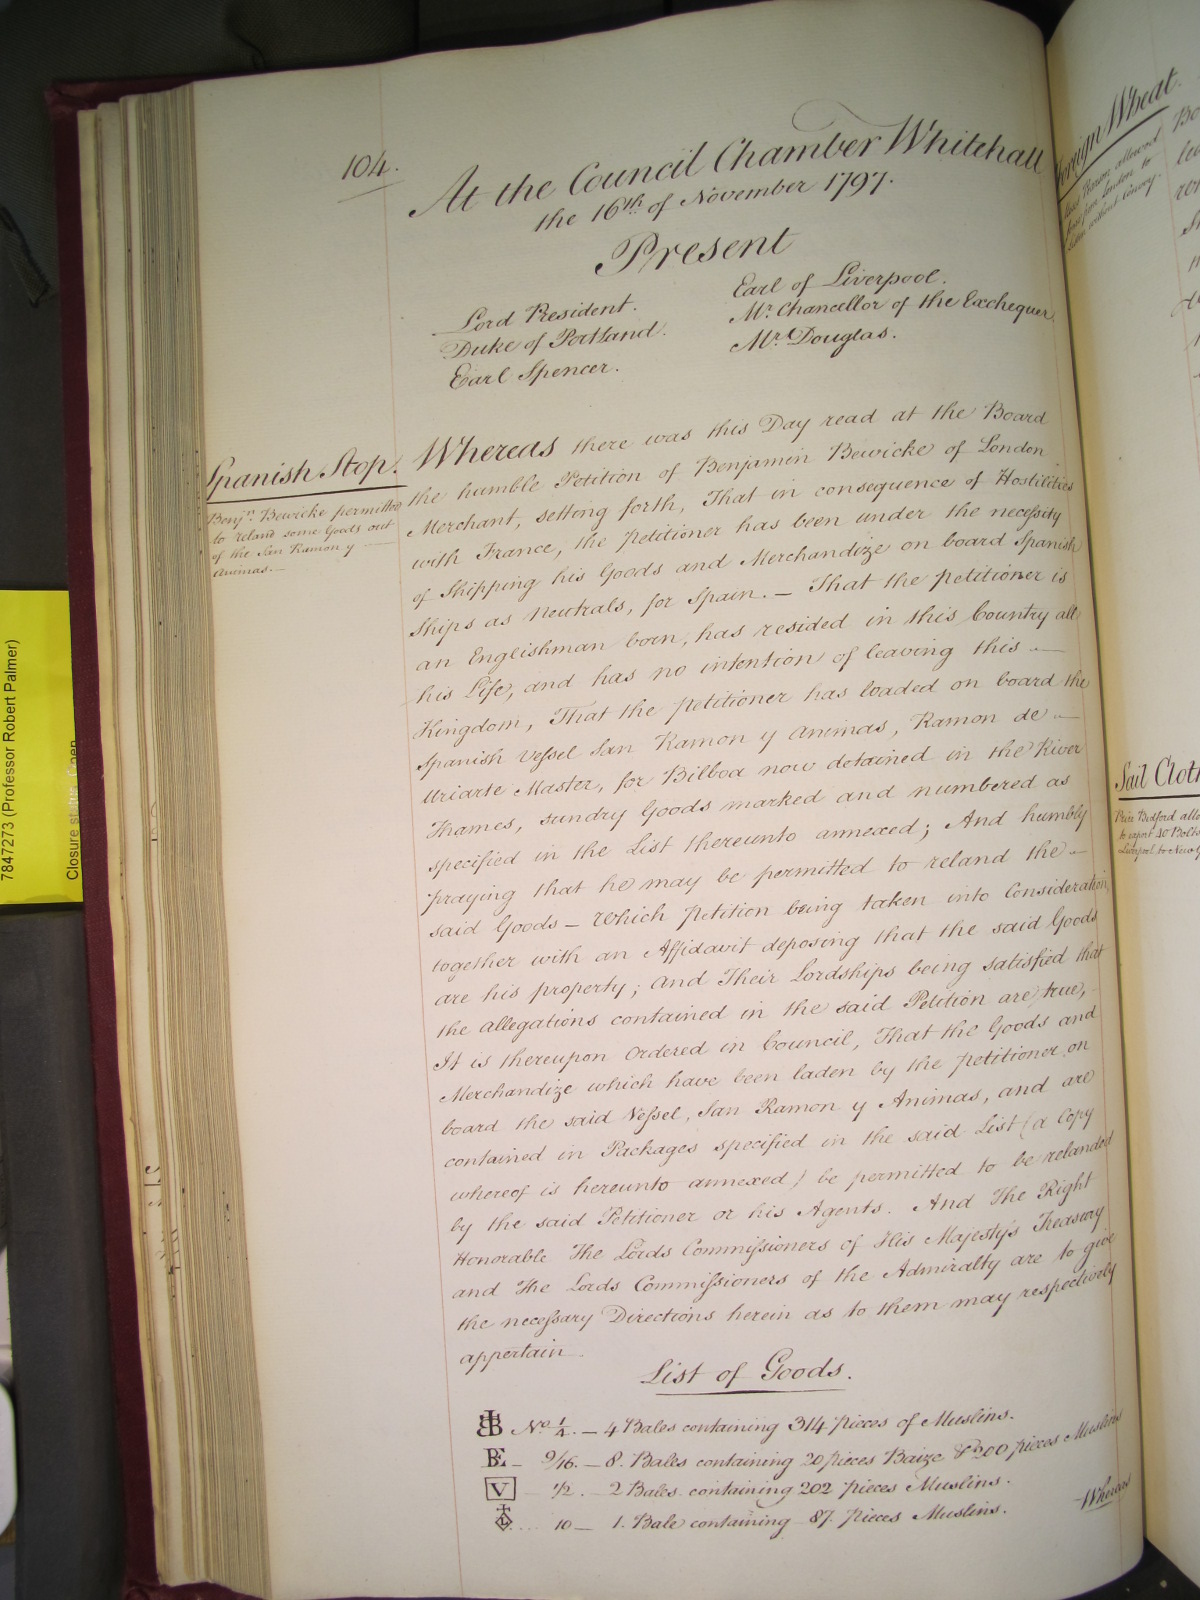 104.
At the Council Chamber Whitehall
the 16th of November 1797.
Present
Lord President.
Duke of Portland.
Earl Spencer.
Earl of Liverpool.
Mr. Chancellor of the Exchequer
Mr. Douglas.
Spanish Stop.
Benjn. Bewicke permitted
to reland some Goods out
of the San Ramon y
Animas.—
Whereas there was this Day read at the Board
the humble Petition of Benjamin Bewicke of London
Merchant, setting forth, That in consequence of Hostilities
with France, the Petitioner has been under the necessity
of Shipping his Goods and Merchandize on board Spanish
Ships as Neutrals, for Spain.— That the petitioner is
an Englishman born, has resided in this Country all
his Life, and has no intention of leaving this —
Kingdom, That the petitioner has loaded on board the
Spanish Vessel San Ramon y Animas, Ramon de —
Uriarte Master, for Bilboa now detained in the River
Thames, sundry Goods marked and numbered as
specified in the List thereunto annexed; And humbly
praying that he may be permitted to reland the —
said Goods — Which petition being taken into Consideration,
together with an Affidavit deposing that the said Goods
are his property; and Their Lordships being satisfied that
the allegations contained in the said Petition are true, —
It is thereupon Ordered in Council, That the Goods and
Merchandize which have been laden by the petitioner on
board the said Vessel, San Ramon y Animas, and are
contained in Packages specified in the said List (a Copy
whereof is hereunto annexed) be permitted to be relanded
by the said Petitioner or his Agents. And The Right
Honorable The Lords Commissioners of His Majesty's Treasury
and The Lords Commissioners of the Admiralty are to give
the necessary Directions herein as to them may respectively
appertain.
List of Goods.
No. 1/4. — 4 Bales containing 314 pieces of Muslins.
BE — 9/16. — 8. Bales containing 20 pieces Baize & 200 pieces Muslins
V 1/2. — 2 Bales containing 202 pieces Muslins.
10 — 1. Bale containing 87. pieces Muslins.
Whereas
Foreign Wheat.
Sail Cloth
7847273 (Professor Robert Palmer)
Closure status: Open